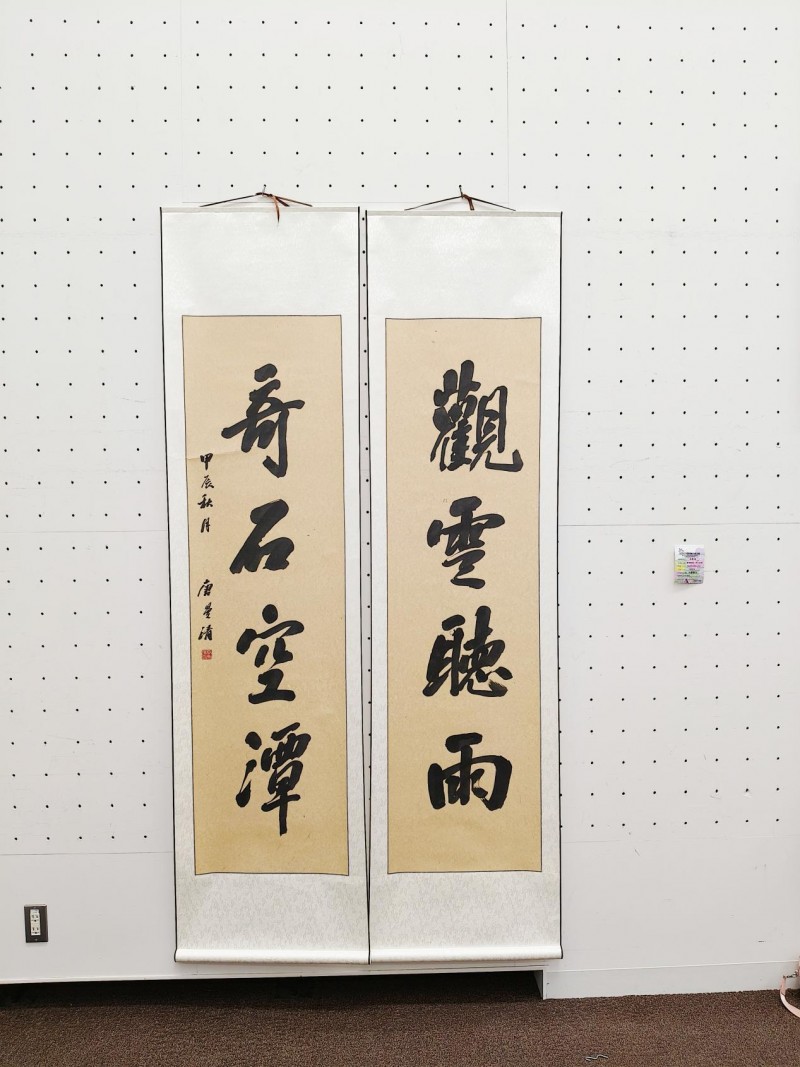 觀雲聽雨
奇石空潭
甲辰秋月
唐星清